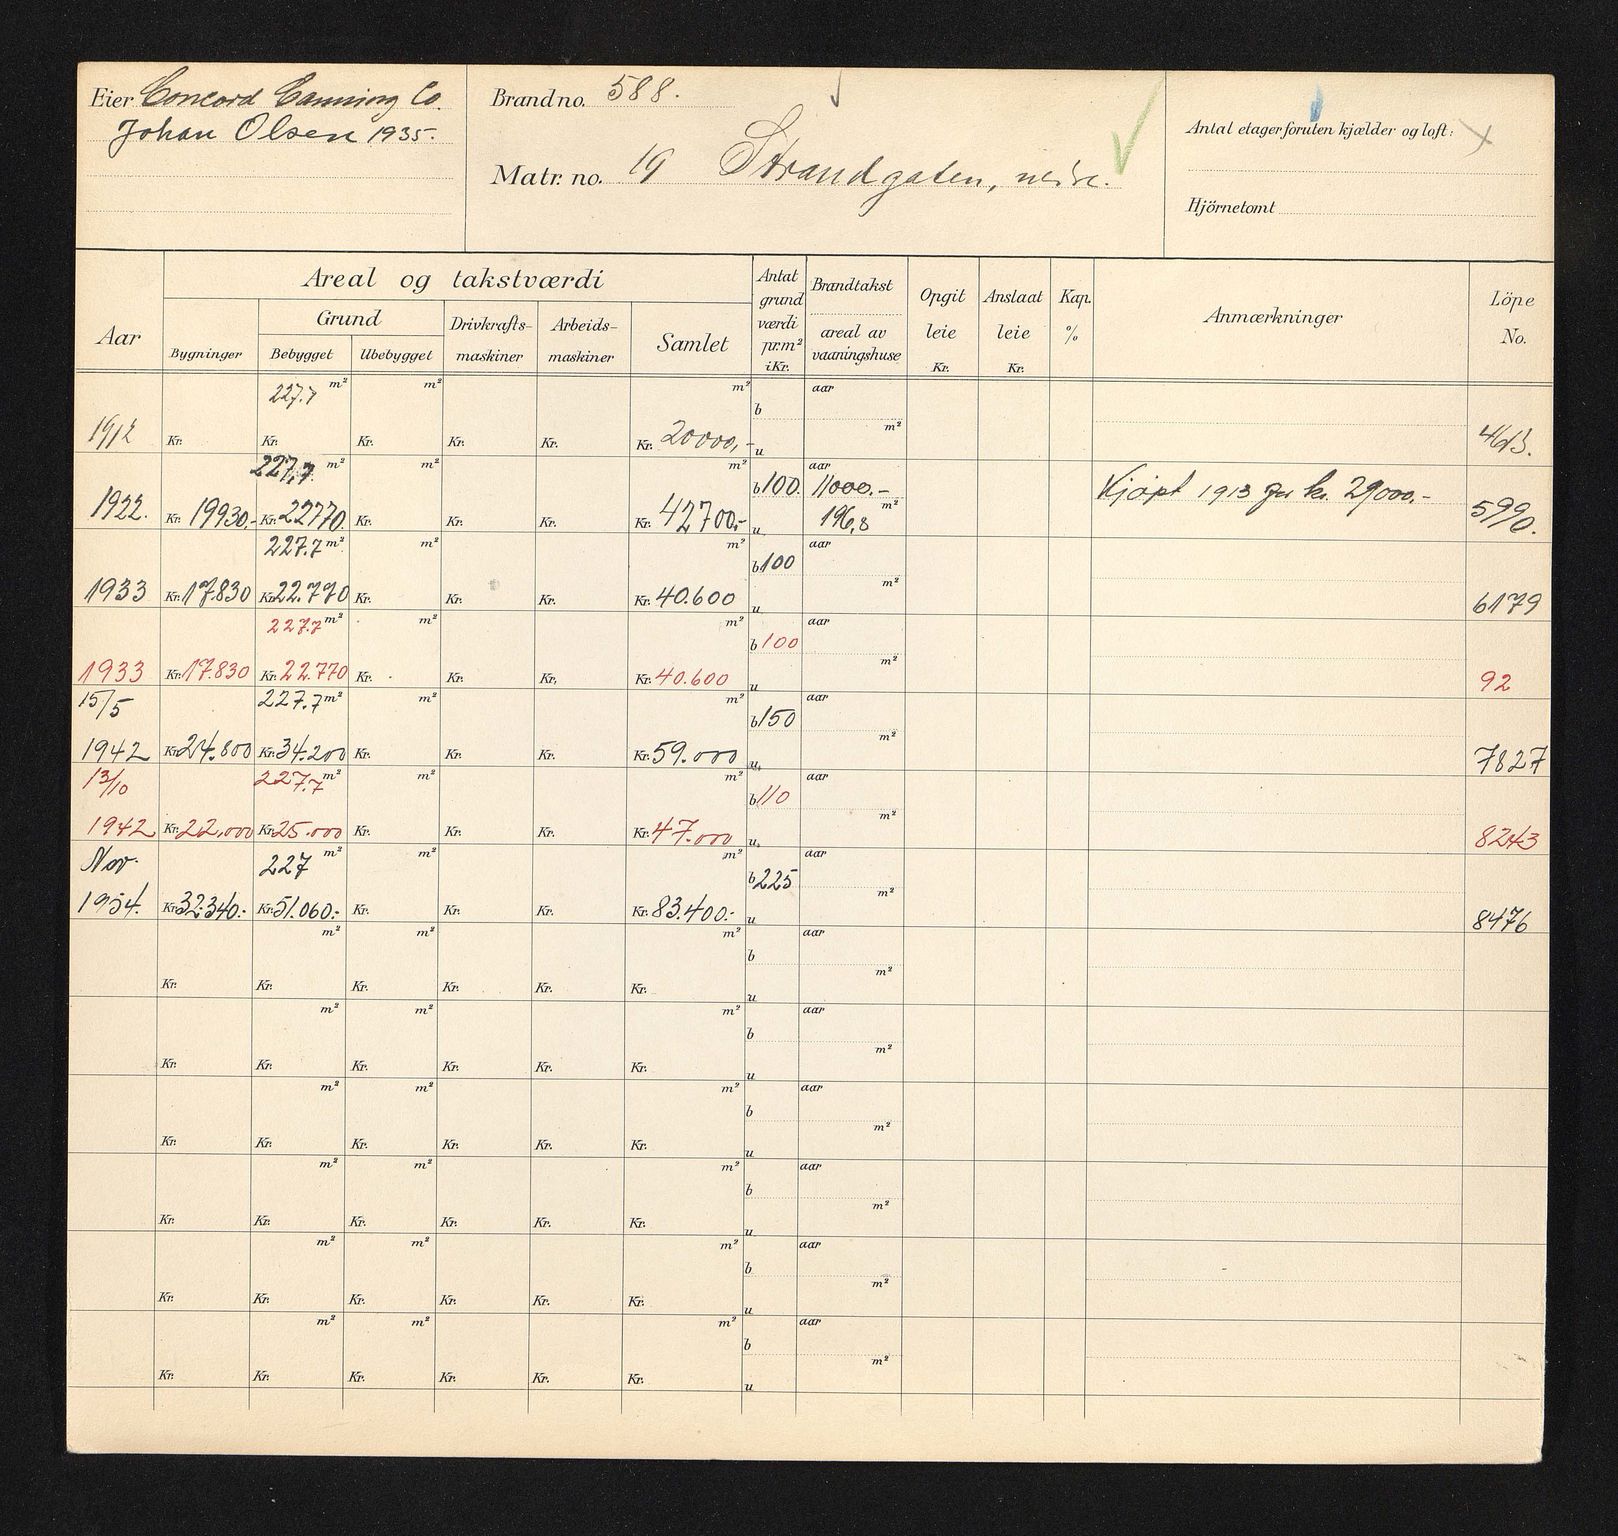 Eier Concord Canning Co.
Johan Olsen 1935.
Brand no. 588.
Matr. no. 19 Strandgaten, nedre.
Antal etager foruten kjælder og loft:
Hjörnetomt
Aar
Areal og takstværdi
Bygninger
Grund
Bebygget Ubebygget
Drivkrafts-maskiner
Arbeids-maskiner
Samlet
Antat grund værdi pr.m² i Kr.
Brandtakst
areal av vaaningshuse
Opgit leie Kr.
Anslaat leie Kr.
Kap. %
Anmærkninger
Löpe No.
227.7 m² m² m² aar
b m²
1912 Kr. Kr. Kr. Kr. Kr. Kr. 20000,- u 4613.
227,7 m² m² m² aar
b 100. 11000.- Kjøpt 1913 for kr. 29000.-
1922. Kr. 19930.- Kr. 22770. Kr. Kr. Kr. Kr. 42700,- u. 196,8 m² 5990.
227.7 m² m² m² aar
b 100 m²
1933 Kr. 17.830 Kr. 22.770 Kr. Kr. Kr. Kr. 40.600 u 6179
227.7 m² m² m² aar
b 100 m²
1933 Kr. 17.830 Kr. 22.770 Kr. Kr. Kr. Kr. 40.600 u 92
15/5 227.7 m² m² m² aar
b 150 m²
1942 Kr. 24.800 Kr. 34.200 Kr. Kr. Kr. Kr. 59.000 u. 7827
13/10 227.7 m² m² m² aar
b 110 m²
1942 Kr. 22.000 Kr. 25.000 Kr. Kr. Kr. Kr. 47.000 u. 8243
Nov. 227 m² m² m² aar
b 225 m²
1954. Kr. 32.340.- Kr. 51.060.- Kr. Kr. Kr. Kr. 83.400.- u 8476
m² m² m² aar
b m²
Kr. Kr. Kr. Kr. Kr. Kr. u
m² m² m² aar
b m²
Kr. Kr. Kr. Kr. Kr. Kr. u
m² m² m² aar
b m²
Kr. Kr. Kr. Kr. Kr. Kr. u
m² m² m² aar
b m²
Kr. Kr. Kr. Kr. Kr. Kr. u
m² m² m² aar
b m²
Kr. Kr. Kr. Kr. Kr. Kr. u
m² m² m² aar
b m²
Kr. Kr. Kr. Kr. Kr. Kr. u